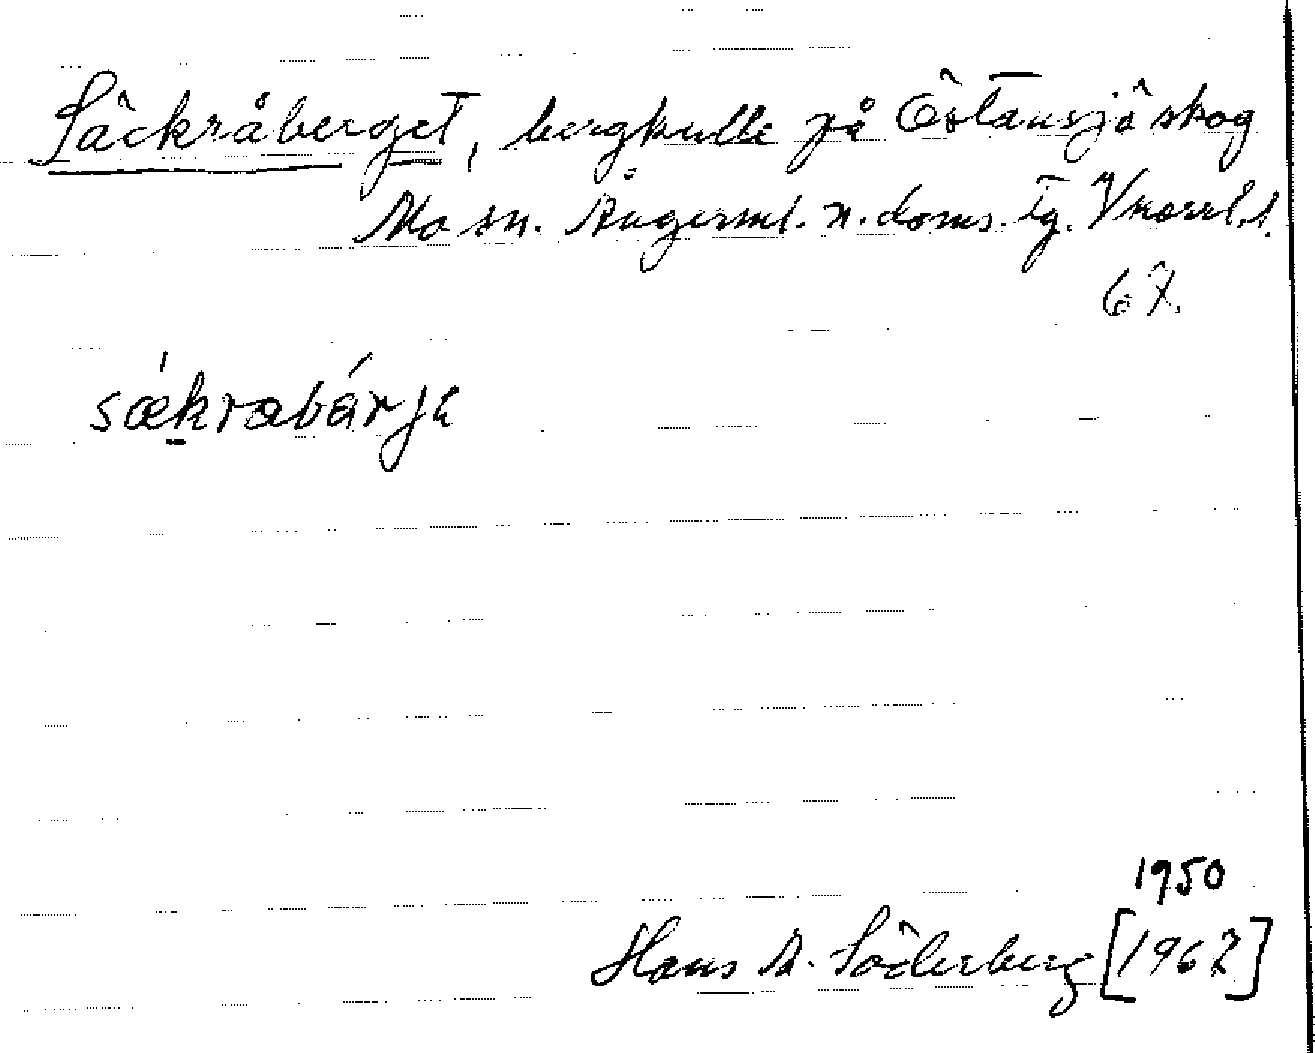 Säckråberget, bergkulle på Östansjö skog
Mo sn. Ångerml. n. doms. tg. Vnorrl. l.
67.
sækrabárja
1950
Hans A. Söderberg [1967]